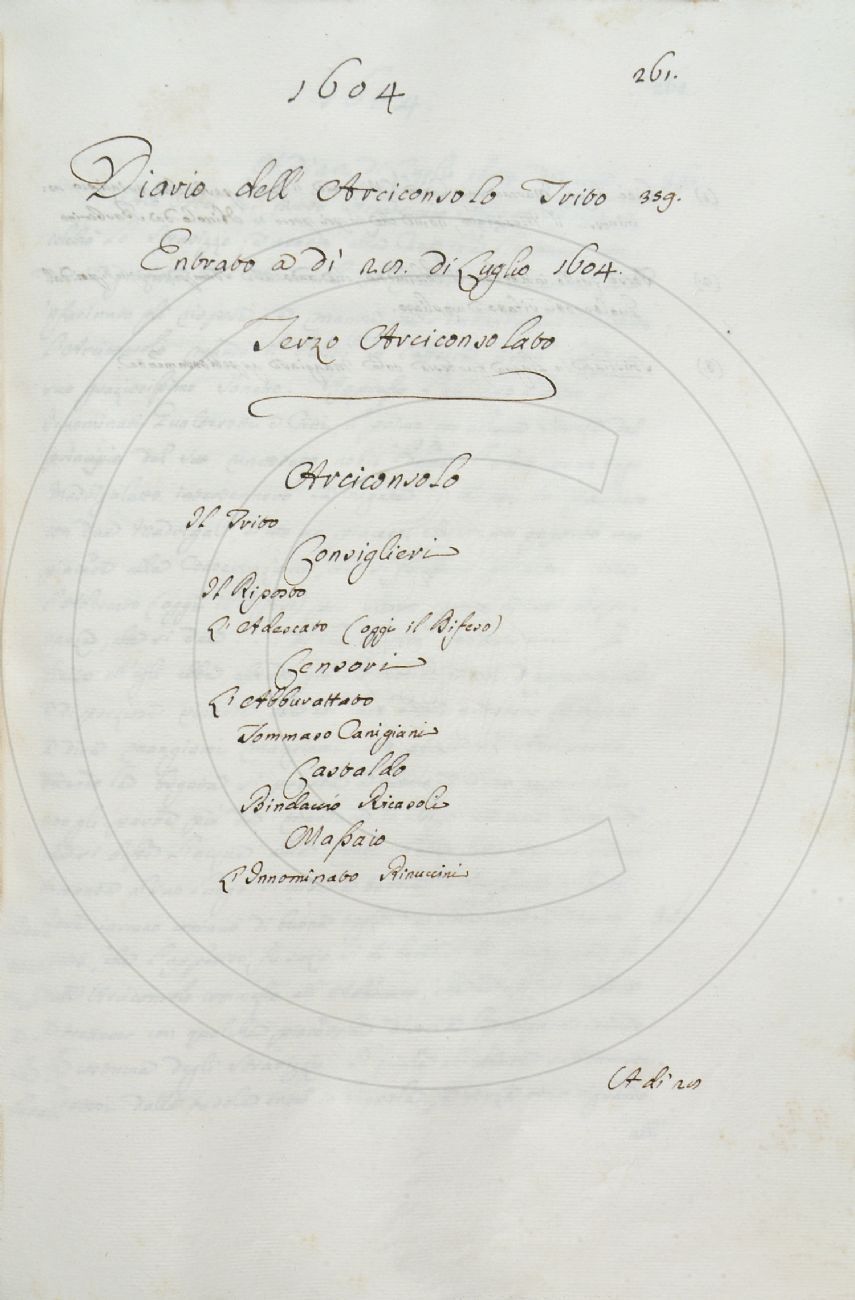 1604
261.
Diario dell' Arciconsolo Trito 339.
Entrato a dì 29. di Luglio 1604.
Terzo Arciconsolato
Arciconsolo
Il Trito
Consiglieri
Il Riposto
L'Adescato (oggi il Difeso)
Censori
L'Abburattato
Tommaso Canigiani
Castaldo
Bindaccio Ricasoli
Massaio
L'Innominato Rinuccini
A dì 29